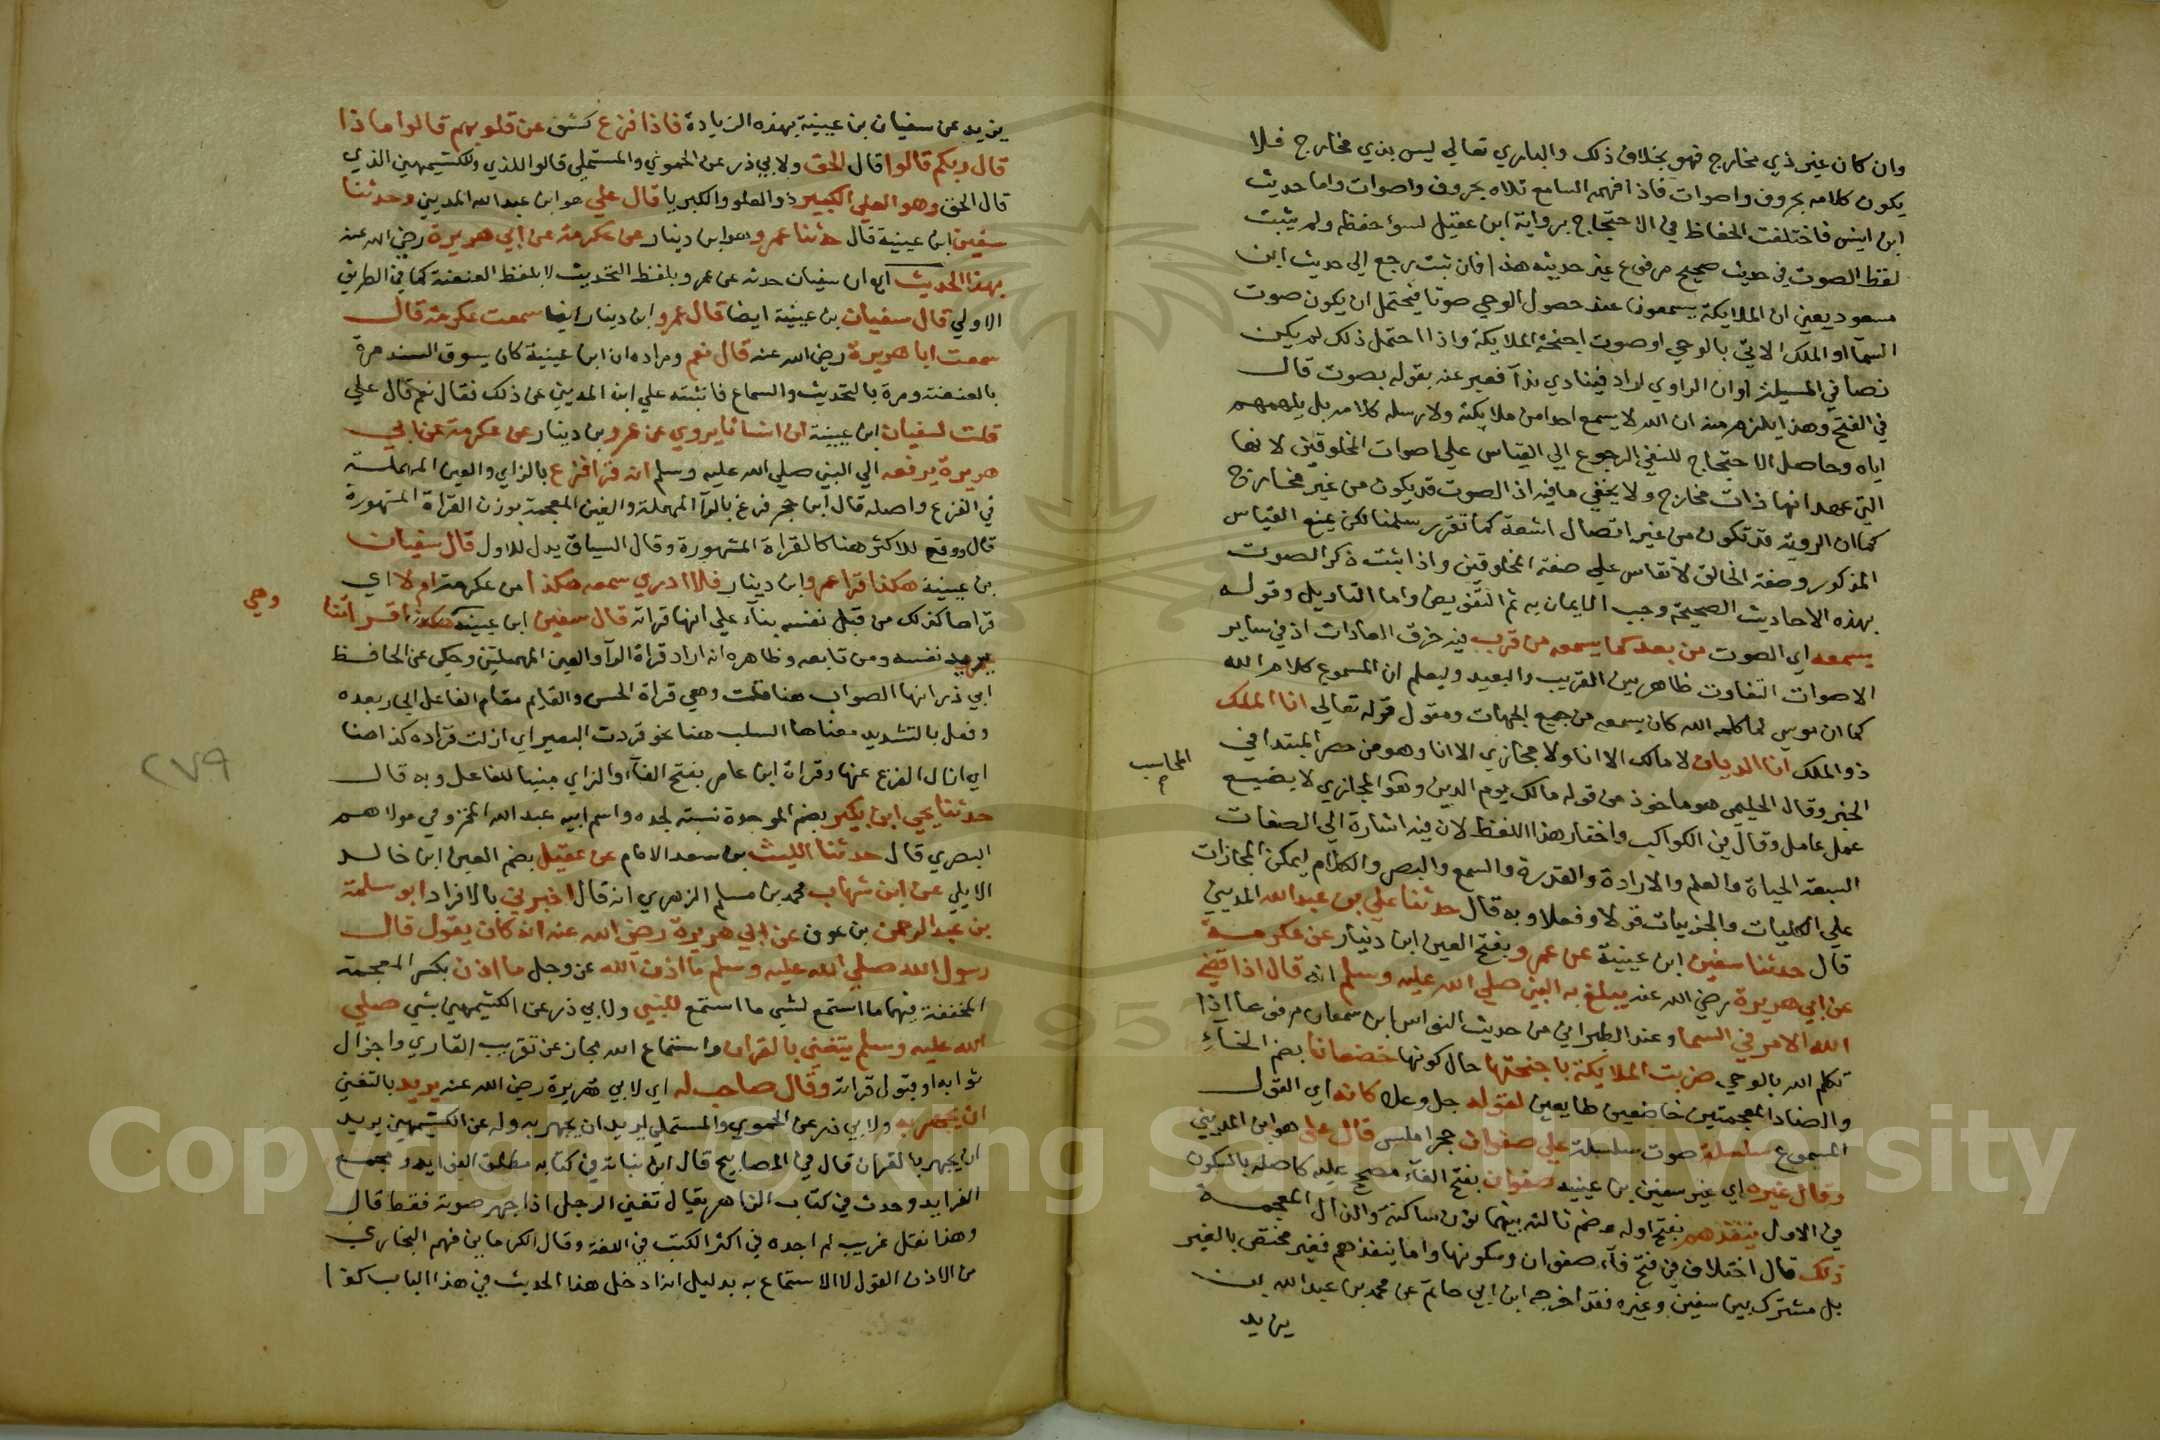 وان كان غير ذي مخارج فهو بخلاف ذلك والباري تعالي ليس بذي مخارج فلا
يكون كلامه بحروف واصوات فاذا فهمه السامع تلاه بحروف واصوات واما حديث
ابن انيس فاختلفت الحفاظ في الاحتجاج برواية ابن عقيل لسؤ حفظه ولم يثبت
لفظ الصوت في حديث صحيح مرفوع غير حديثه هذا فان ثبت يرجع الي حديث ابن
مسعود يعني ان الملايكة يسمعون عند حصول الوحي صوتا فيحتمل ان يكون صوت
السمآ او الملك الاتي بالوحي او صوت اجنحة الملايكة واذا احتمل ذلك لم يكن
نصا في المسيلة او ان الراوي اراد فينادي ندآ فعبر عنه بقوله بصوت قال
في الفتح وهذا يلزم منه ان الله لا يسمع احدا من ملايكته ولا رسله كلامه بل يلهمهم
اياه وحاصل الاحتجاج للنفي الرجوع الي القياس علي اصوات المخلوقين لانها
التي عهد انها ذات مخارج ولا يخفي ما فيه اذ الصوت قد يكون من غير مخارج
كما ان الروية قد تكون من غير اتصال اشعة كما تقرر سلمنا لكن يمنع القياس
المذكور وصفة الخالق لا تقاس علي صفة المخلوقين واذا ثبت ذكر الصوت
بهذه الاحاديث الصحيحة وجب الايمان به ثم التفويض واما التاويل وقوله
يسمعه اي الصوت من بعد كما يسمعه من قرب فيه خرق العادات اذ في ساير
الاصوات التفاوت ظاهر بين القريب والبعيد وليعلم ان المسموع كلام الله
كما ان موسي لما كلمه الله كان يسمعه من جميع الجهات ومقول قوله تعالي انا الملك
ذو الملك انا الديان لا مالك الا انا ولا مجازي الا انا وهو من حصر المبتدا في
الخبر وقال الحليمي هو ماخوذ من قوله مالك يوم الدين وهو المجازي لا يضيع
المحاسب
عمل عامل وقال في الكواكب واختار هذا اللفظ لان فيه اشارة الي الصفات
السبعة الحياة والعلم والارادة والقدرة والسمع والبصر والكلام ليمكن المجازات
علي الكليات والجزييات قولا وفعلا وبه قال حدثنا علي بن عبد الله المديني
قال حدثنا سفين ابن عيينة عن عمرو بفتح العين ابن دينار عن عكرمة
عن ابي هريرة رضي الله عنه يبلغ به النبي صلي الله عليه وسلم انه قال اذا قضي
الله الامر في السما وعند الطبراني من حديث النواس ابن سمعان مرفوعا اذا
تكلم الله بالوحي ضربت الملايكة باجنحتها حال كونها خضعانا بضم الخآء
والضاد المعجمتين خاضعين طايعين لقوله جل وعلا كانه اي القول
المسموع سلسلة صوت سلسلة علي صفوان حجر املس قال علي هو ابن المديني
وقال غيره اي غير سفين بن عيينه صفوان بفتح الفآء مصحح عليه كاصله بالسكون
في الاول ينفذهم بفتح اوله وضم ثالثه بينهما نون ساكنة والذال المعجمة
ذلك قال اختلاف في فتح فآء صفوان وسكونها واما ينفذهم فغير مختص بالغير
بل مشترك بين سفين وغيره فقد اخرجه ابن ابي حاتم عن محمد بن عبد الله بن
يزيد
يزيد عن سفيان بن عيينة بهذه الزيادة فاذا فزع كشف عن قلوبهم قالوا ماذا
قال ربكم قالوا قال الحق ولابي ذر عن الحموي والمستملي قالوا للذي وللكشيمهيني الذي
قال الحق وهو العلي الكبير ذو العلو والكبريا قال علي هو ابن عبد الله المديني وحدثنا
سفين ابن عيينة قال حدثنا عمرو هو ابن دينار عن عكرمة عن ابي هريرة رضي الله عنه
بهذا الحديث اي ان سفيان حدثه عن عمرو بلفظ التحديث لا بلفظ العنعنة كما في الطريق
الاولي قال سفيان بن عيينة ايضا قال عمرو ابن دينار ايضا سمعت عكرمة قال
سمعت ابا هريرة رضي الله عنه قال نعم ومراده ان ابن عيينة كان يسوق السند مرة
بالعنعنة ومرة بالتحديث والسماع فاثبته علي ابن المديني عن ذلك فقال نعم قال علي
قلت لسفيان ابن عيينة ان انسانا يروي عن عمرو بن دينار عن عكرمة عن ابي
هريرة يرفعه الي النبي صلي الله عليه وسلم انه قرا فزع بالزاي والعين المهملة
في الفزع واصله قال ابن حجر فرغ بالرآ المهملة والغين المعجمة بوزن القراة المشهورة
قال ووقع للاكثر هنا كالقراة المشهورة وقال السياق يدل للاول قال سفيان
بن عيينة هكذا قرا عمرو ابن دينار فلا ادري سمعه هكذا من عكرمة ام لا اي
قراها كذلك من قبل نفسه بنآء علي انها قراته قال سفين ابن عيينة هكذا قراتنا
وهي
يريد نفسه ومن تابعه وظاهره انه اراد قراة الرآ والعين المهملتين وحكي عن الحافظ
ابي ذر انها الصواب هنا قلت وهي قراة الحسن والقايم مقام الفاعل الجار بعده
وفعل بالتشديد معناها السلب هنا نحو قردت البعير اي ازلت قراده كذا هنا
اي ازال الفزع عنها وقراة ابن عامر بفتح الفآء والزاي مبنيا للفاعل وبه قال
حدثنا يحيي ابن بكير بضم الموحدة نسبة لجده واسم ابيه عبد الله المخزومي مولاهم
البصري قال حدثنا الليث بن سعد الامام عن عقيل بضم العين ابن خالد
الايلي عن ابن شهاب محمد بن مسلم الزهري انه قال اخبرني بالافراد ابو سلمة
بن عبد الرحمن بن عوف عن ابي هريرة رضي الله عنه انه كان يقول قال
رسول الله صلي الله عليه وسلم ما اذن الله عز وجل ما اذن بكسر المعجمة
المخففة فيهما ما استمع لشي ما استمع للنبي ولابي ذر عن الكشيمهني بشي صلي
الله عليه وسلم يتغني بالقران واستماع الله مجاز عن تقريب القاري واجزال
ثوابه او قبول قراته وقال صاحب له اي لابي هريرة رضي الله عنه يريد بالتغني
ان يجهر به ولابي ذر عن الحموي والمستملي يريد ان يجهر به وله عن الكشيمهني يريد
ان يجهر بالقران قال في المصابيح قال ابن نباتة في كتابه مطلع الفوايد ومجمع
الفرايد وجدت في كتاب الزاهر يقال تغني الرجل اذا جهر صوته فقط قال
وهذا نقل غريب لم اجده في اكثر الكتب في اللغة وقال الكرماني فهم البخاري
من الاذن القول لا الاستماع به بدليل انه ادخل هذا الحديث في هذا الباب كذا
٢٧٩
Copyright © King Saud University
1957